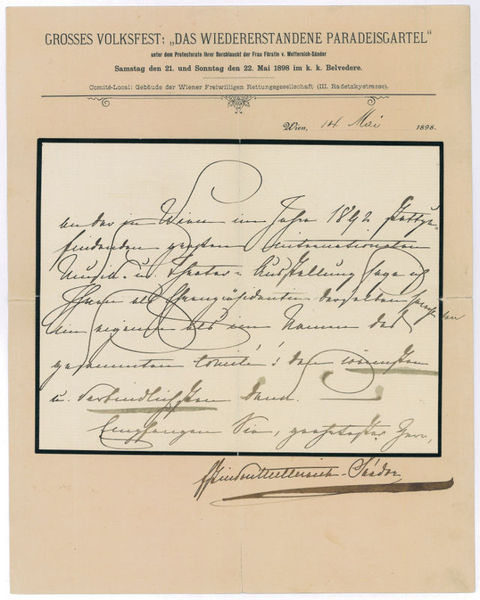 GROSSES VOLKSFEST: „DAS WIEDERERSTANDENE PARADEISGARTEL"
unter dem Protectorate Ihrer Durchlaucht der Frau Fürstin v. Metternich-Sándor
Samstag den 21. und Sonntag den 22. Mai 1898 im k. k. Belvedere.
Comité-Local: Gebäude der Wiener Freiwilligen Rettungsgesellschaft (III. Radetzkystrasse).
Wien, 14 Mai 1898.
An der in Wien im Jahre 1892 stattge-
findenden großen internationalen
Musik- u. Theater-Ausstellung sage ich
Ihnen als Ehrenpräsidentin derselben sowohl
im eigenen als im Namen des
gesammten Comité's den wärmsten
u. verbindlichsten Dank.
Empfangen Sie, geehrtester Herr,
Metternich-Sándor